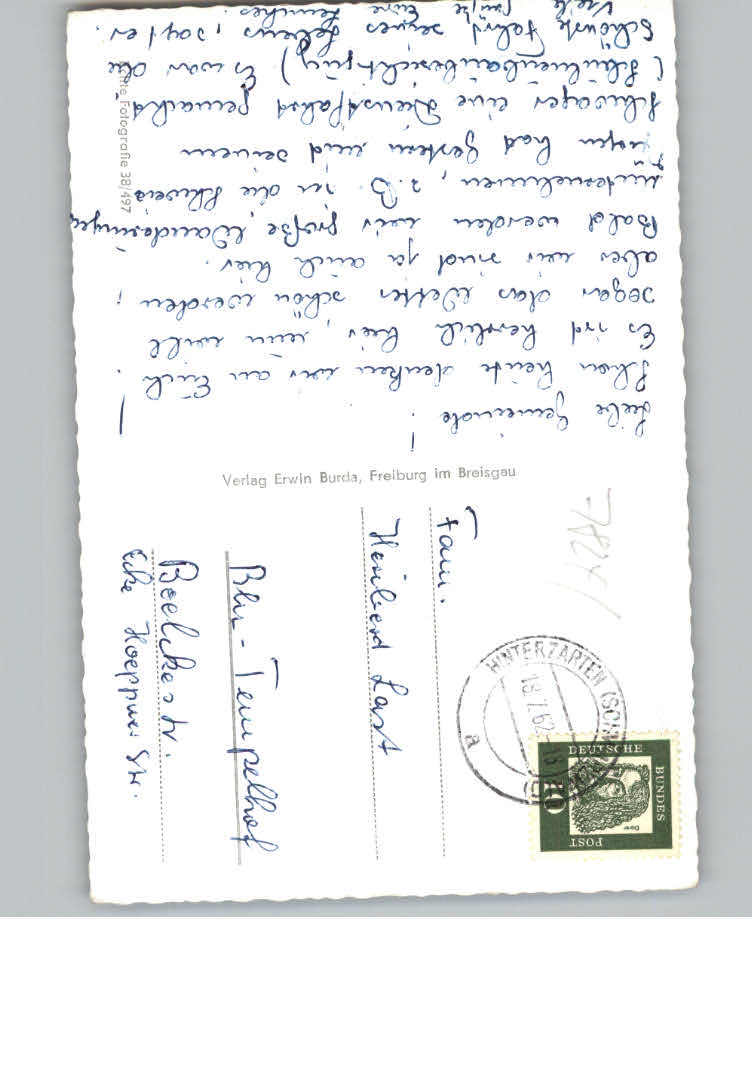 Liebe Gemeinde!
Schon heute denken wir an Euch!
Es ist herrlich hier, nun will
sogar das Wetter schön werden;
aber wir sind ja auch hier.
Bald werden wir große Wanderungen
unternehmen, z.B. in die Schweiz
hat gestern mit seinem
Schwager eine Dienstfahrt gemacht,
) Es war die
schönste Fahrt seines Lebens, sagt er.
Viele Eure
Echte Fotografie 38/497
Verlag Erwin Burda, Freiburg im Breisgau
Fam.
Heribert Last
Bln-Tempelhof
Boelckestr.
Ecke Hoeppner Str.
HINTERZARTEN (SCHW
18.7.62-
a
DEUTSCHE
BUNDES
POST
Dürer
10